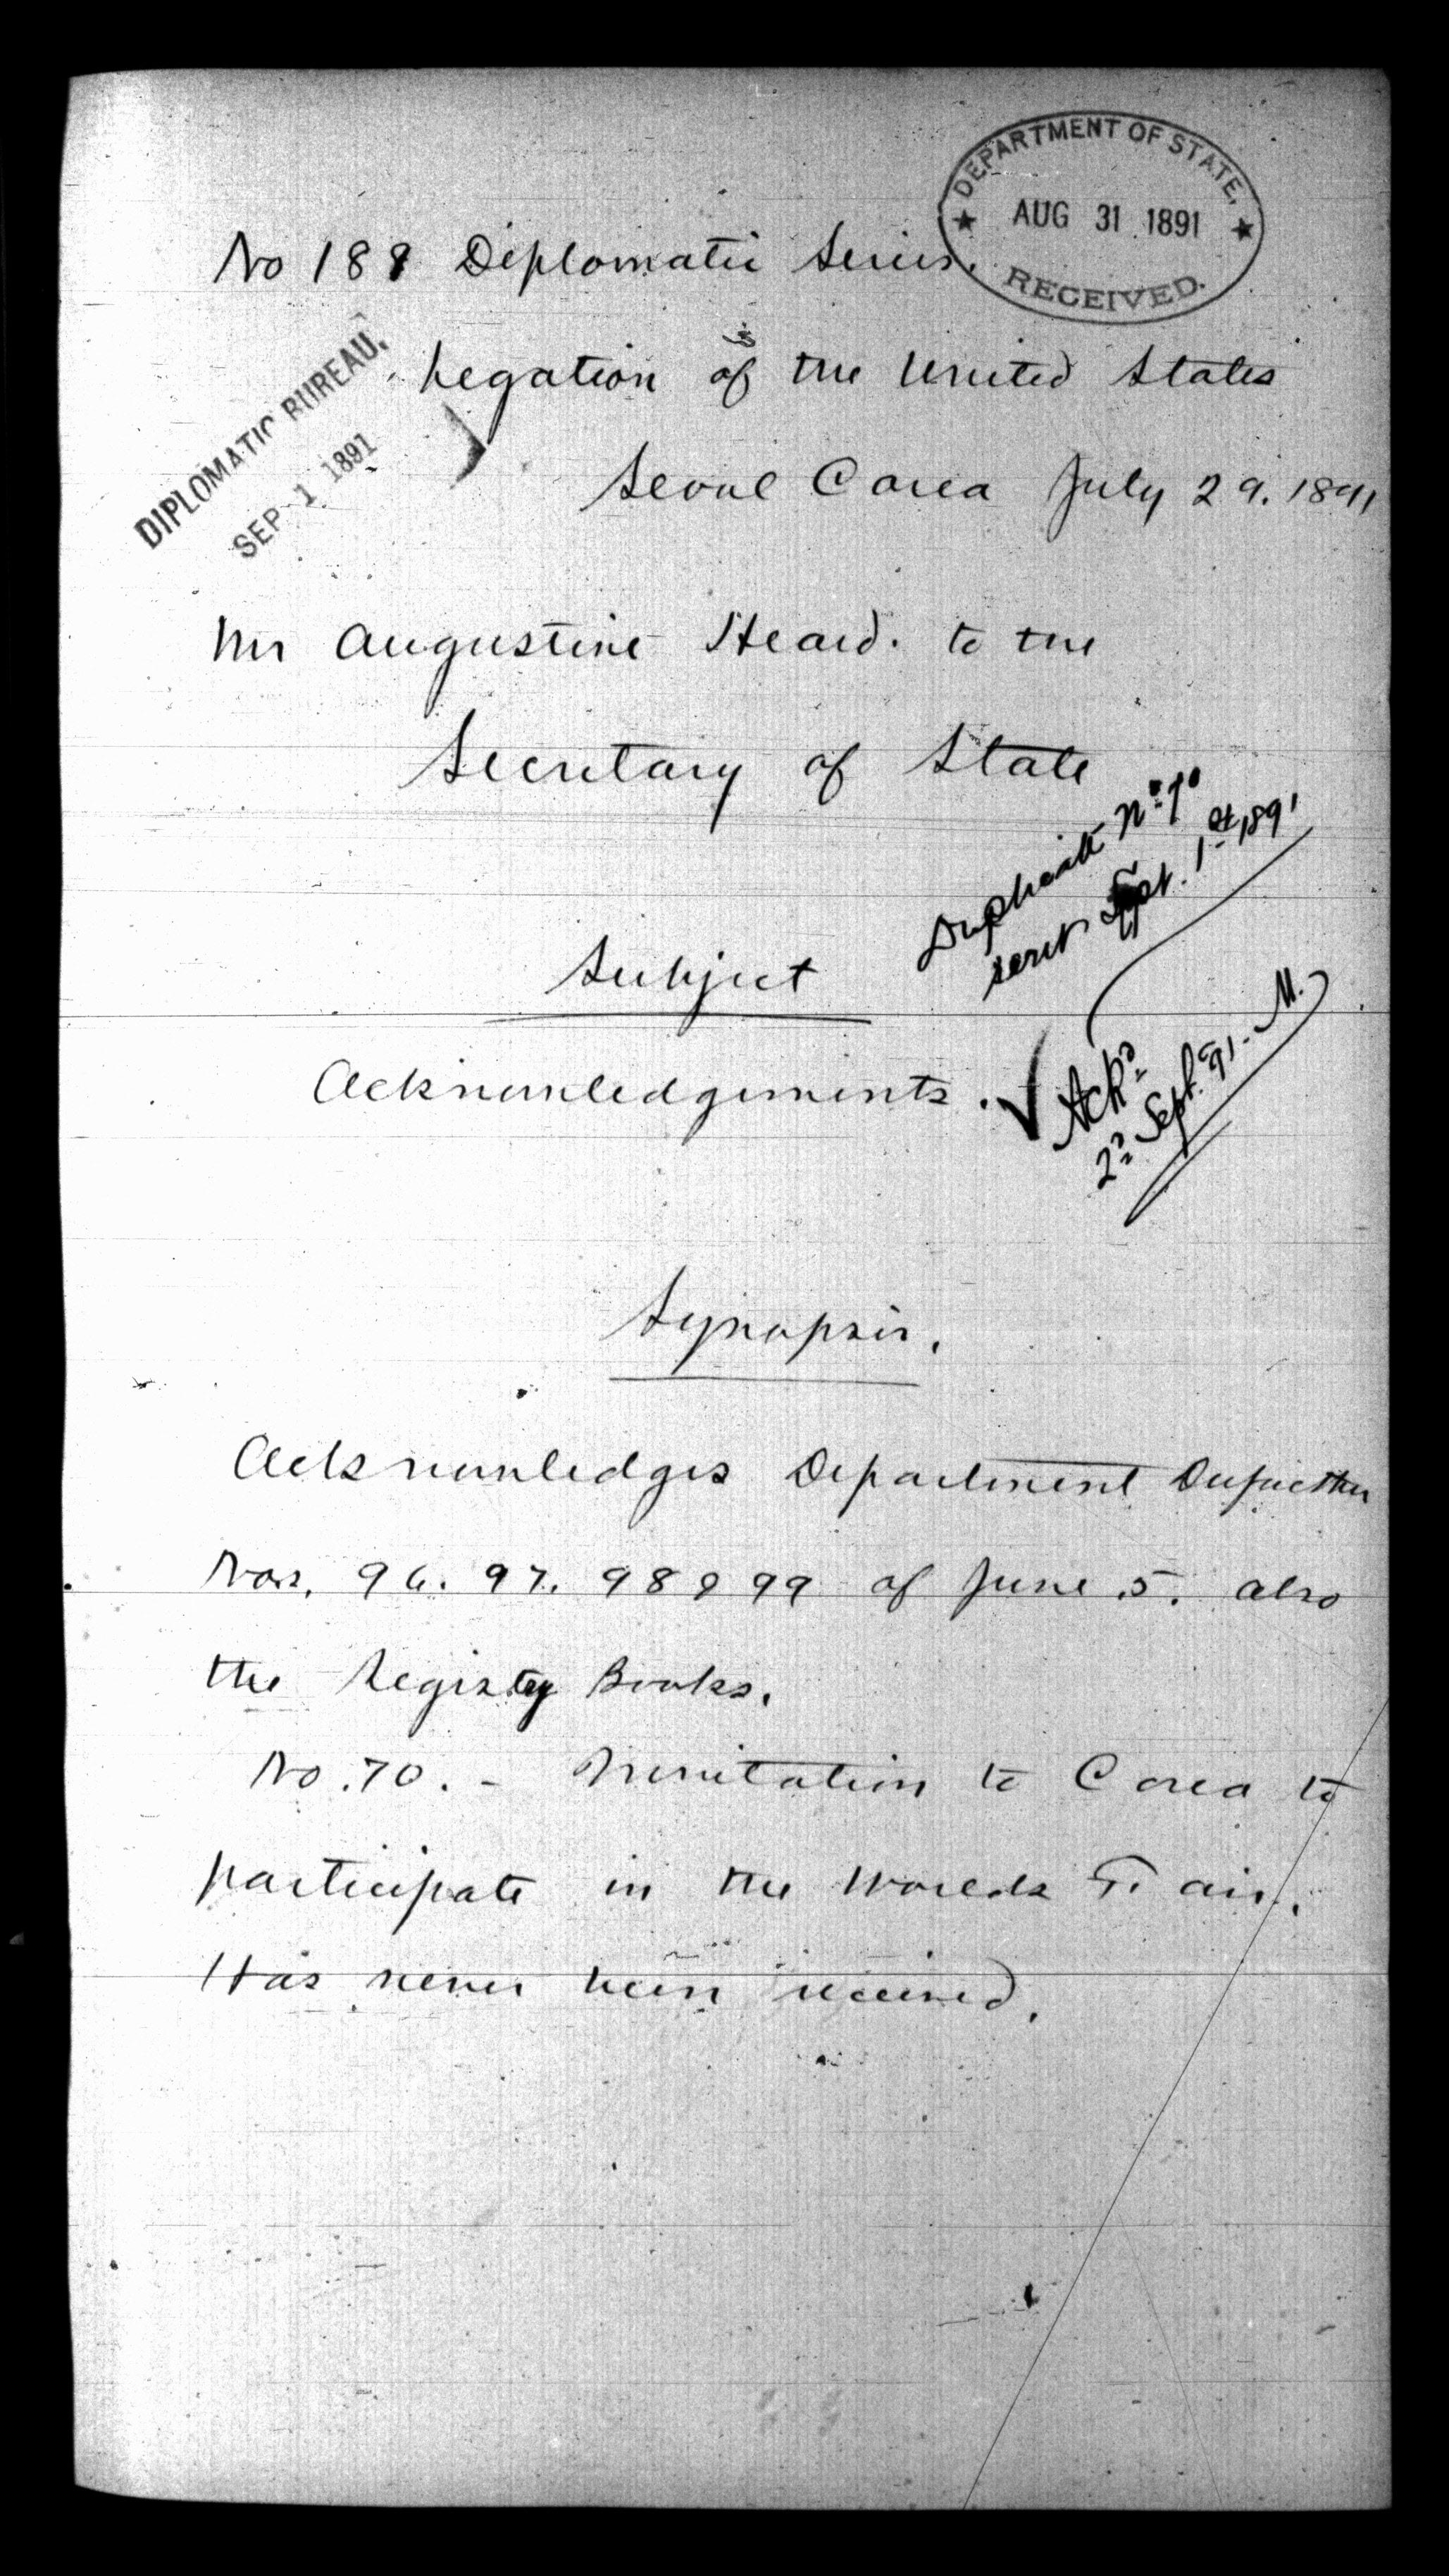 DEPARTMENT OF STATE,
AUG 31 1891
RECEIVED.
No 188 Diplomatic Series.
DIPLOMATIC BUREAU.
SEP 1 1891
Legation of the United States
Seoul Corea July 29. 1891
Mr Augustine Heard. to the
Secretary of State
Duplicate No. 70
sent Sept. 1st, 1891
Subject
Acknowledgements.
Ackd
2d Sept. 91 - M.
Synopsis.
Acknowledges Department Despatches
Nos. 96. 97. 98 & 99 of June 5. also
the Registry Books.
No. 70. - Invitation to Corea to
participate in the Worlds Fair.
Has never been received.